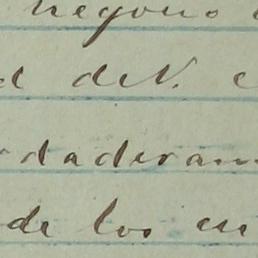 negocio
d de N. e
rdaderam
de los en